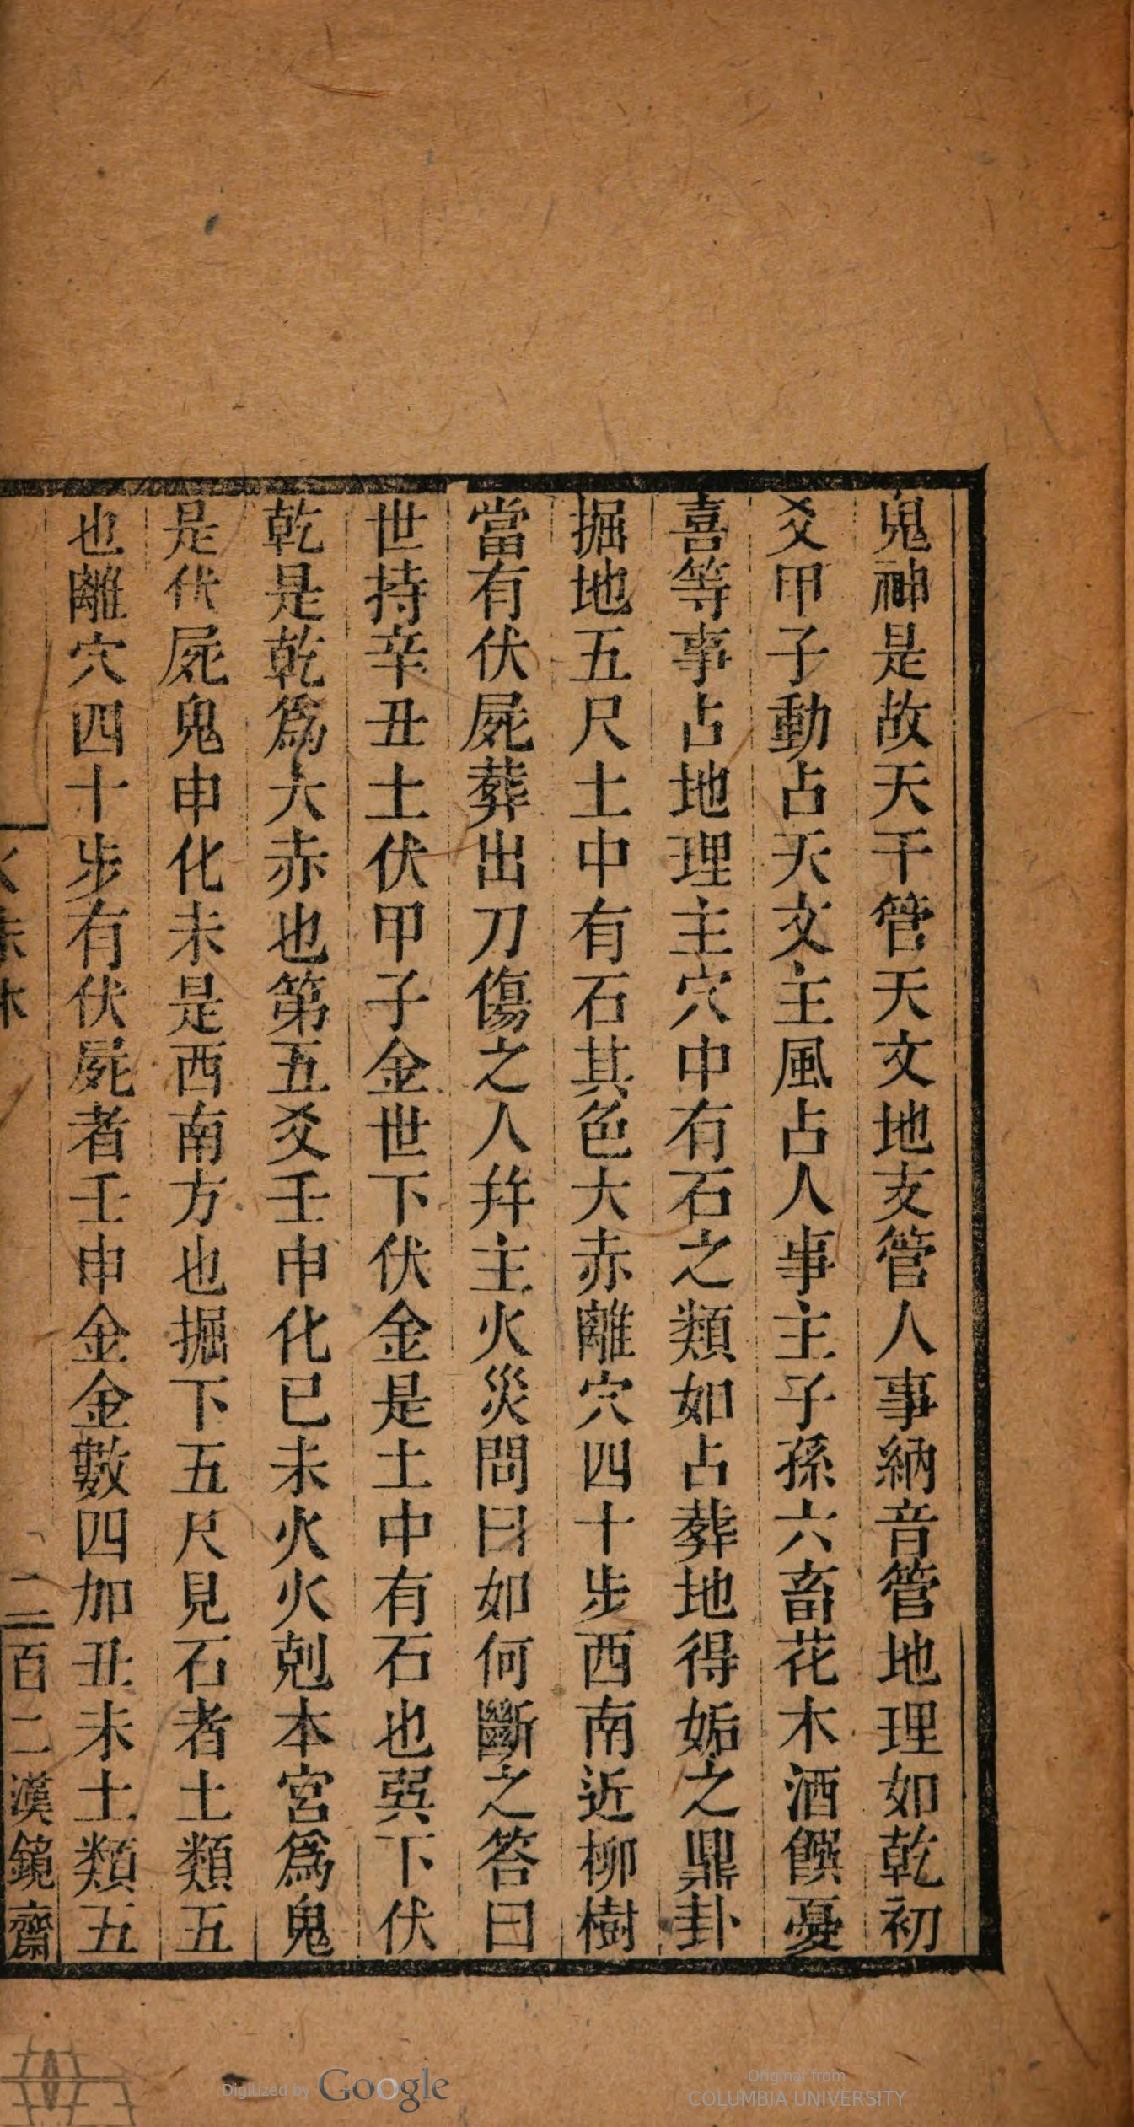 鬼神是故天干管天文地支管人事納音管地理如乾初
爻甲子動占天文主風占人事主子孫六畜花木酒饌憂
喜等事占地理主穴中有石之類如占葬地得姤之鼎卦
掘地五尺土中有石其色大赤離穴四十步西南近柳樹
當有伏屍葬出刀傷之人并主火災問曰如何斷之答曰
世持辛丑土伏甲子金世下伏金是土中有石也巽下伏
乾是乾爲大赤也第五爻壬申化已未火火剋本宮爲鬼
是伏屍鬼申化未是西南方也掘下五尺見石者土類五
也離穴四十步有伏屍者壬申金金數四加丑未土類五
火珠林
二百二漢鏡齋
Digitized by Google
Original from
COLUMBIA UNIVERSITY